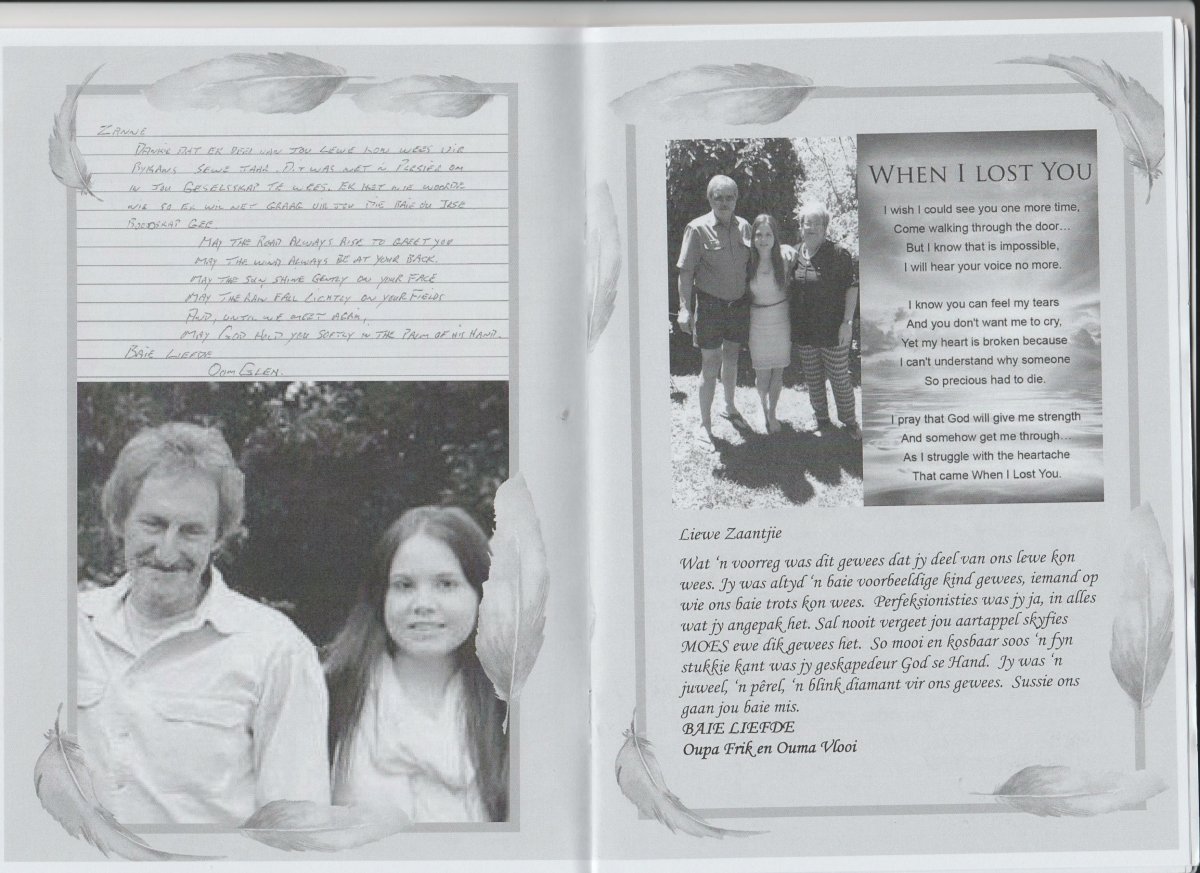 ZANNE
DANKIE DAT EK DEEL VAN JOU LEWE KON WEES VIR
BYKANS SEWE JAAR. DIT WAS NET 'N PLESIER OM
IN JOU GESELSSKAP TE WEES. EK HET NIE WOORDE
NIE SO EK WIL NET GRAAG VIR JOU DIE BAIE OU IERSE
BOODSKAP GEE.
MAY THE ROAD ALWAYS RISE TO GREET YOU
MAY THE WIND ALWAYS BE AT YOUR BACK.
MAY THE SUN SHINE GENTLY ON YOUR FACE
MAY THE RAIN FALL LIGHTLY ON YOUR FIELDS
AND, UNTIL WE MEET AGAIN,
MAY GOD HOLD YOU SOFTLY IN THE PALM OF HIS HAND.
BAIE LIEFDE
OOM GLEN.
WHEN I LOST YOU
I wish I could see you one more time,
Come walking through the door...
But I know that is impossible,
I will hear your voice no more.
I know you can feel my tears
And you don't want me to cry,
Yet my heart is broken because
I can't understand why someone
So precious had to die.
I pray that God will give me strength
And somehow get me through...
As I struggle with the heartache
That came When I Lost You.
Liewe Zaantjie
Wat 'n voorreg was dit gewees dat jy deel van ons lewe kon
wees. Jy was altyd 'n baie voorbeeldige kind gewees, iemand op
wie ons baie trots kon wees. Perfeksionisties was jy ja, in alles
wat jy angepak het. Sal nooit vergeet jou aartappel skyfies
MOES ewe dik gewees het. So mooi en kosbaar soos 'n fyn
stukkie kant was jy geskapedeur God se Hand. Jy was 'n
juweel, 'n pêrel, 'n blink diamant vir ons gewees. Sussie ons
gaan jou baie mis.
BAIE LIEFDE
Oupa Frik en Ouma Vlooi